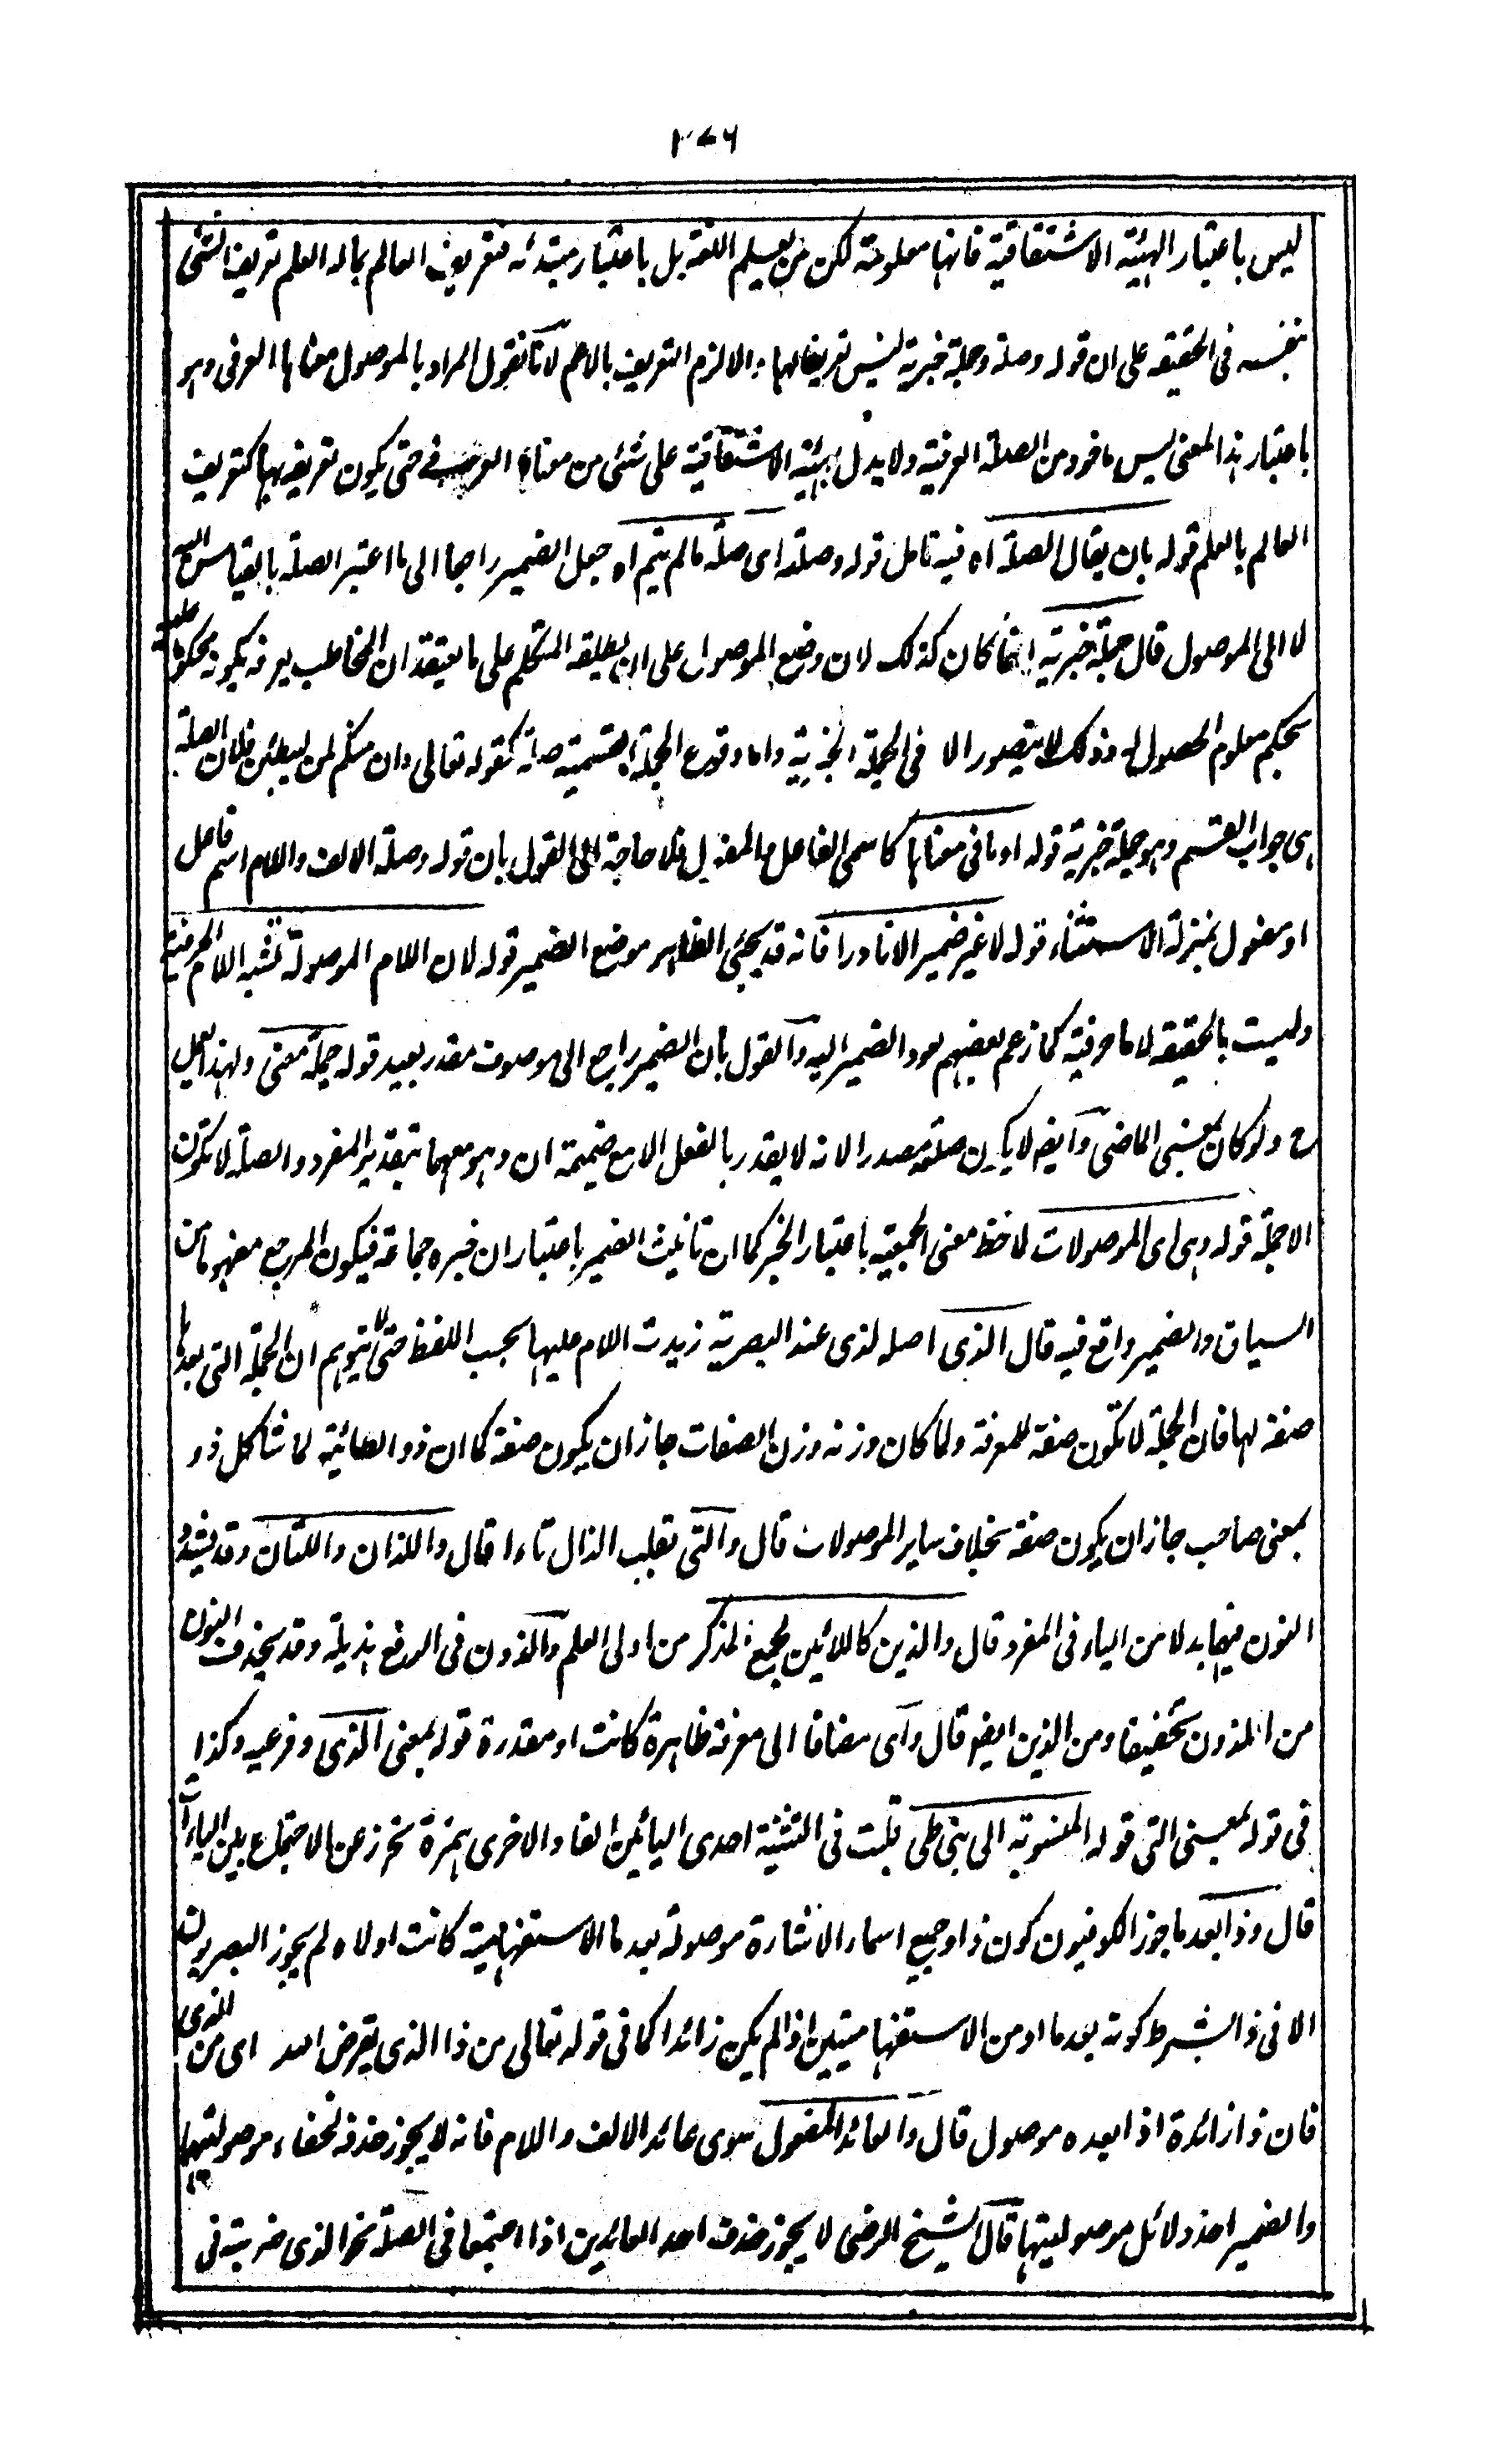 ٢٧٦
ليس باعتبار الهيئة الاشتقاقية فانها معلومة لكن من يعلم اللغة بل باعتبار مبتدئه فتعريف العالم بماله العلم تعريف الشئ
بنفسه فى الحقيقه على ان قوله وصلة وجملة خبرية ليس تعريفا لهما والا لزم التعريف بالاعم لانا نقول المراد بالموصول معناها العرفى وهو
باعتبار هذا المعنى ليس ماخوذ من الصلة العرفية ولا يدل بهيئة الاشتقاقية على شئى من معناه العرفى حتى يكون تعريفه بها كتعريف
العالم بالعلم قوله بان يقال الصلة اه فيه تامل قوله وصلته اى صلة مالم يتم اه جعل الضمير راجعا الى ما اعتبر الصلة بالقياس اليه
لا الى الموصول قال جملة خبرية انما كان كذلك لان وضع الموصول على ان يطلقه المتكلم على ما يعتقد ان المخاطب يعرفه بكونه محكوما عليه
بحكم معلوم الحصول له وذلك لا يتصور الا فى الجملة الخبرية واما وقوع الجملة القسمية صلة كقوله تعالى وان منكم لمن ليبطئن فلان الصلة
هى جواب القسم وهو جملة خبرية قوله او ما فى معناها كاسمى الفاعل والمفعول فلا حاجة الى القول بان قوله وصلة الالف واللام اسم فاعل
او مفعول بمنزلة الاستثناء قوله لا غير ضمير الا نادرا فانه قد يجئى الظاهر موضع الضمير قوله لان اللام الموصولة تشبه اللام الحرفية
وليست بالحقيقه لاما حرفية كما زعم بعضهم لعود الضمير اليه والقول بان الضمير راجع الى موصوف مقدر بعيد قوله جملة معنى ولهذا يعمل
ح ولو كان بمعنى الماضى وايضا لا يكون صلته مصدرا لانه لا يقدر بالفعل الا مع ضميمة ان وهو معهما بتقدير المفرد والصلة لا تكون
الا جملة قوله وهى اى الموصولات لاحظ معنى الجمعية باعتبار الخبر كما ان تانيث الضمير باعتبار ان خبره جماعة فيكون المرجع مفهوما من
السياق والضمير واقع فيه قال الذى اصله لذى عند البصرية زيدت اللام عليها بحسب اللفظ حتى لا يتوهم ان الجملة التى بعدها
صفة لها فان الجملة لا تكون صفة للمعرفة ولما كان وزنه وزن الصفات جاز ان يكون صفة كما ان ذو الطائية لما شاكل ذو
بمعنى صاحب جاز ان يكون صفة بخلاف ساير الموصولات قال والتى بقلب الذال تاءا قال واللذان واللتان وقد يشدد
النون فيهما بدلا من الياء فى المفرد قال والذين كاللائين لجمع المذكر من اولى العلم والذون فى الرفع هذيلية وقد يحذف النون
من الذون تخفيفا ومن الذين ايضا قال وآى مضافا الى معرفة ظاهرة كانت او مقدرة قوله بمعنى الذى وفرعيه وكذا
فى قوله بمعنى التى قوله المنسوبة الى بنى طى قلبت فى التثنية احدى اليائين الفا والاخرى همزة تحرزا عن الاجتماع بين الياءآت
قال وذا بعد ما جوز الكوفيون كون ذا وجميع اسماء الاشارة موصولة بعد ما الاستفهامية كانت اولا ولم يجوز البصريون
الا فى ذا بشرط كونه بعد ما او من الاستفهاميتين اذا لم يكن زائدا كما فى قوله تعالى من ذا الذى يقرض الله اى من الذى
فان ذا زائدة اذ ا بعده موصول قال والعائد المفعول سوى عائد الالف واللام فانه لا يجوز حذفه لخفاء موصوليتها
والضمير احد دلائل موصوليتها قال الشيخ الرضى لا يجوز حذف احد العائدين اذا اجتمعا فى الصلة نحو الذى ضربته فى